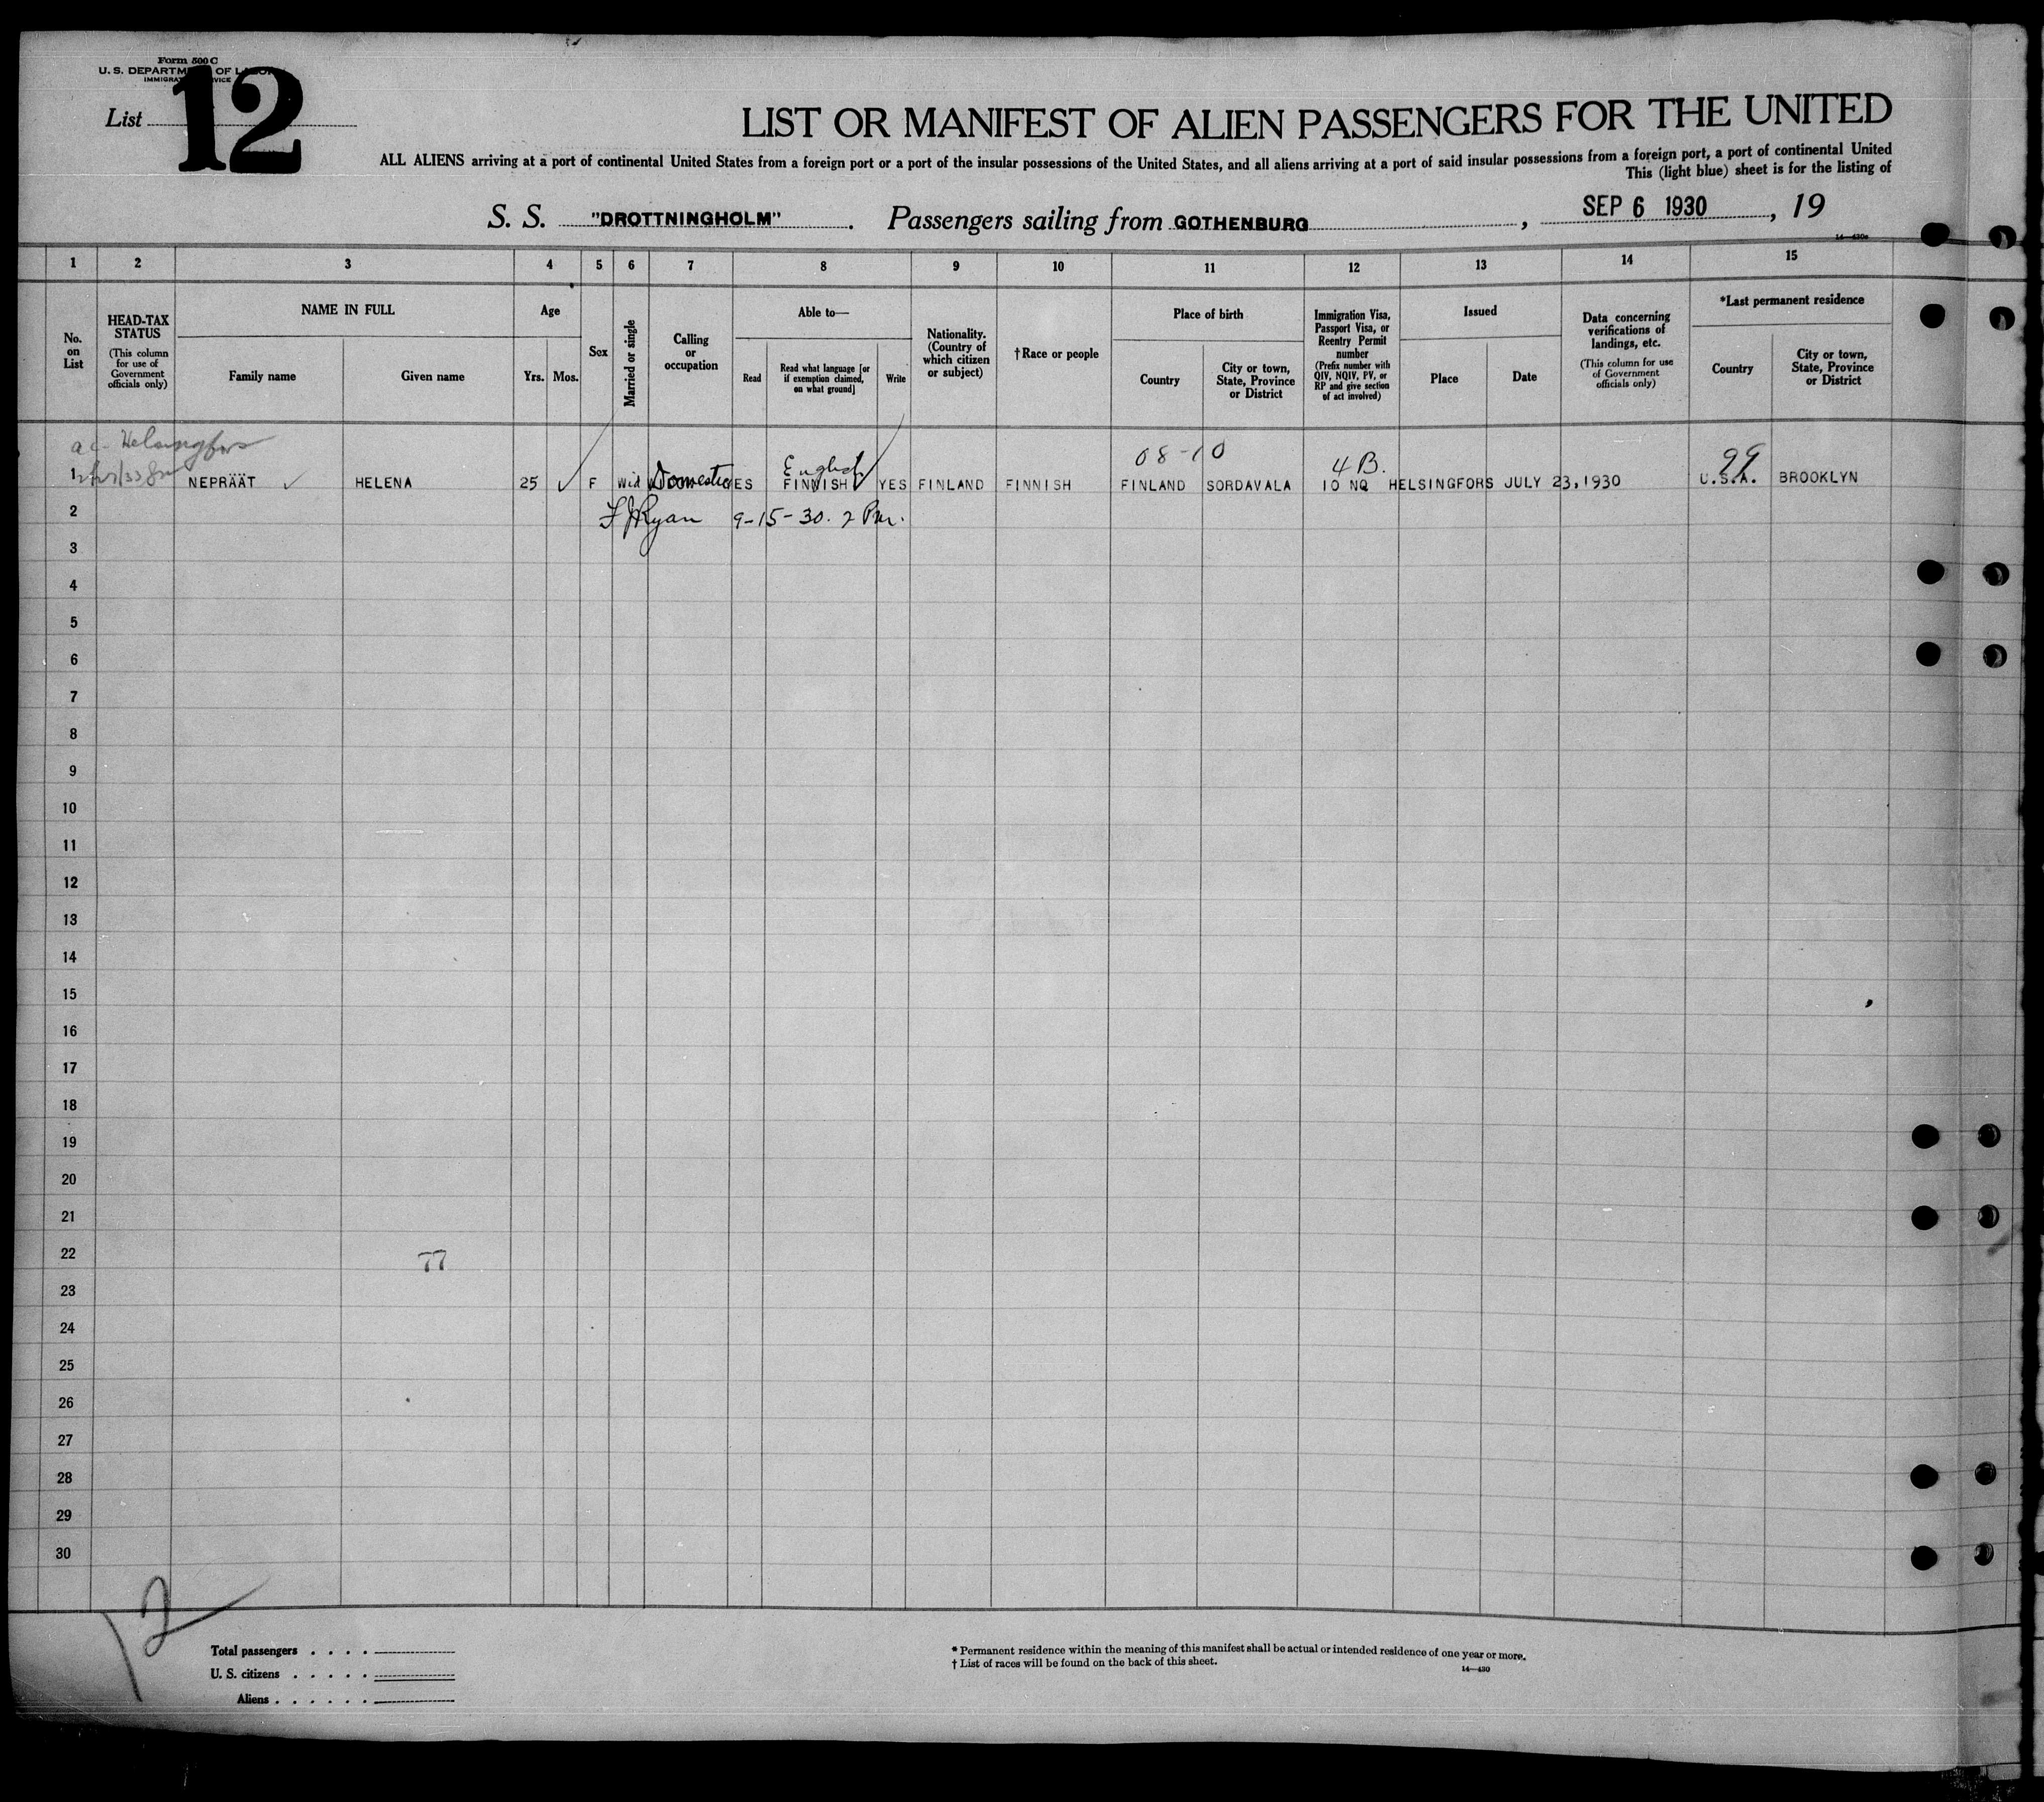 Form 500 C
U. S. DEPARTMENT OF LABOR
IMMIGRATION SERVICE
List 12
LIST OR MANIFEST OF ALIEN PASSENGERS FOR THE UNITED
ALL ALIENS arriving at a port of continental United States from a foreign port or a port of the insular possessions of the United States, and all aliens arriving at a port of said insular possessions from a foreign port, a port of continental United
This (light blue) sheet is for the listing of
S. S. "DROTTNINGHOLM". Passengers sailing from GOTHENBURG, SEP 6 1930, 19
14—430a
1 2 3 4 5 6 7 8 9 10 11 12 13 14 15
No. on List
HEAD-TAX STATUS (This column for use of Government officials only)
NAME IN FULL
Family name
Given name
Age
Yrs. Mos.
Sex
Married or single
Calling or occupation
Able to—
Read
Read what language [or if exemption claimed, on what ground]
Write
Nationality. (Country of which citizen or subject)
†Race or people
Place of birth
Country
City or town, State, Province or District
Immigration Visa, Passport Visa, or Reentry Permit number (Prefix number with QIV, NQIV, PV, or RP and give section of act involved)
Issued
Place
Date
Data concerning verifications of landings, etc. (This column for use of Government officials only)
*Last permanent residence
Country
City or town, State, Province or District
Helsingfors
English 08-10 4 B. 99
1 NEPRÄÄT HELENA 25 F Wid Domestic YES FINNISH YES FINLAND FINNISH FINLAND SORDAVALA 10 NQ HELSINGFORS JULY 23,1930 U.S.A. BROOKLYN
2 F J Ryan 9-15-30. 2 Pm.
3
4
5
6
7
8
9
10
11
12
13
14
15
16
17
18
19
20
21
22 77
23
24
25
26
27
28
29
30
12
Total passengers . . . .
U. S. citizens . . . . .
Aliens . . . . . .
* Permanent residence within the meaning of this manifest shall be actual or intended residence of one year or more.
† List of races will be found on the back of this sheet.
14—430